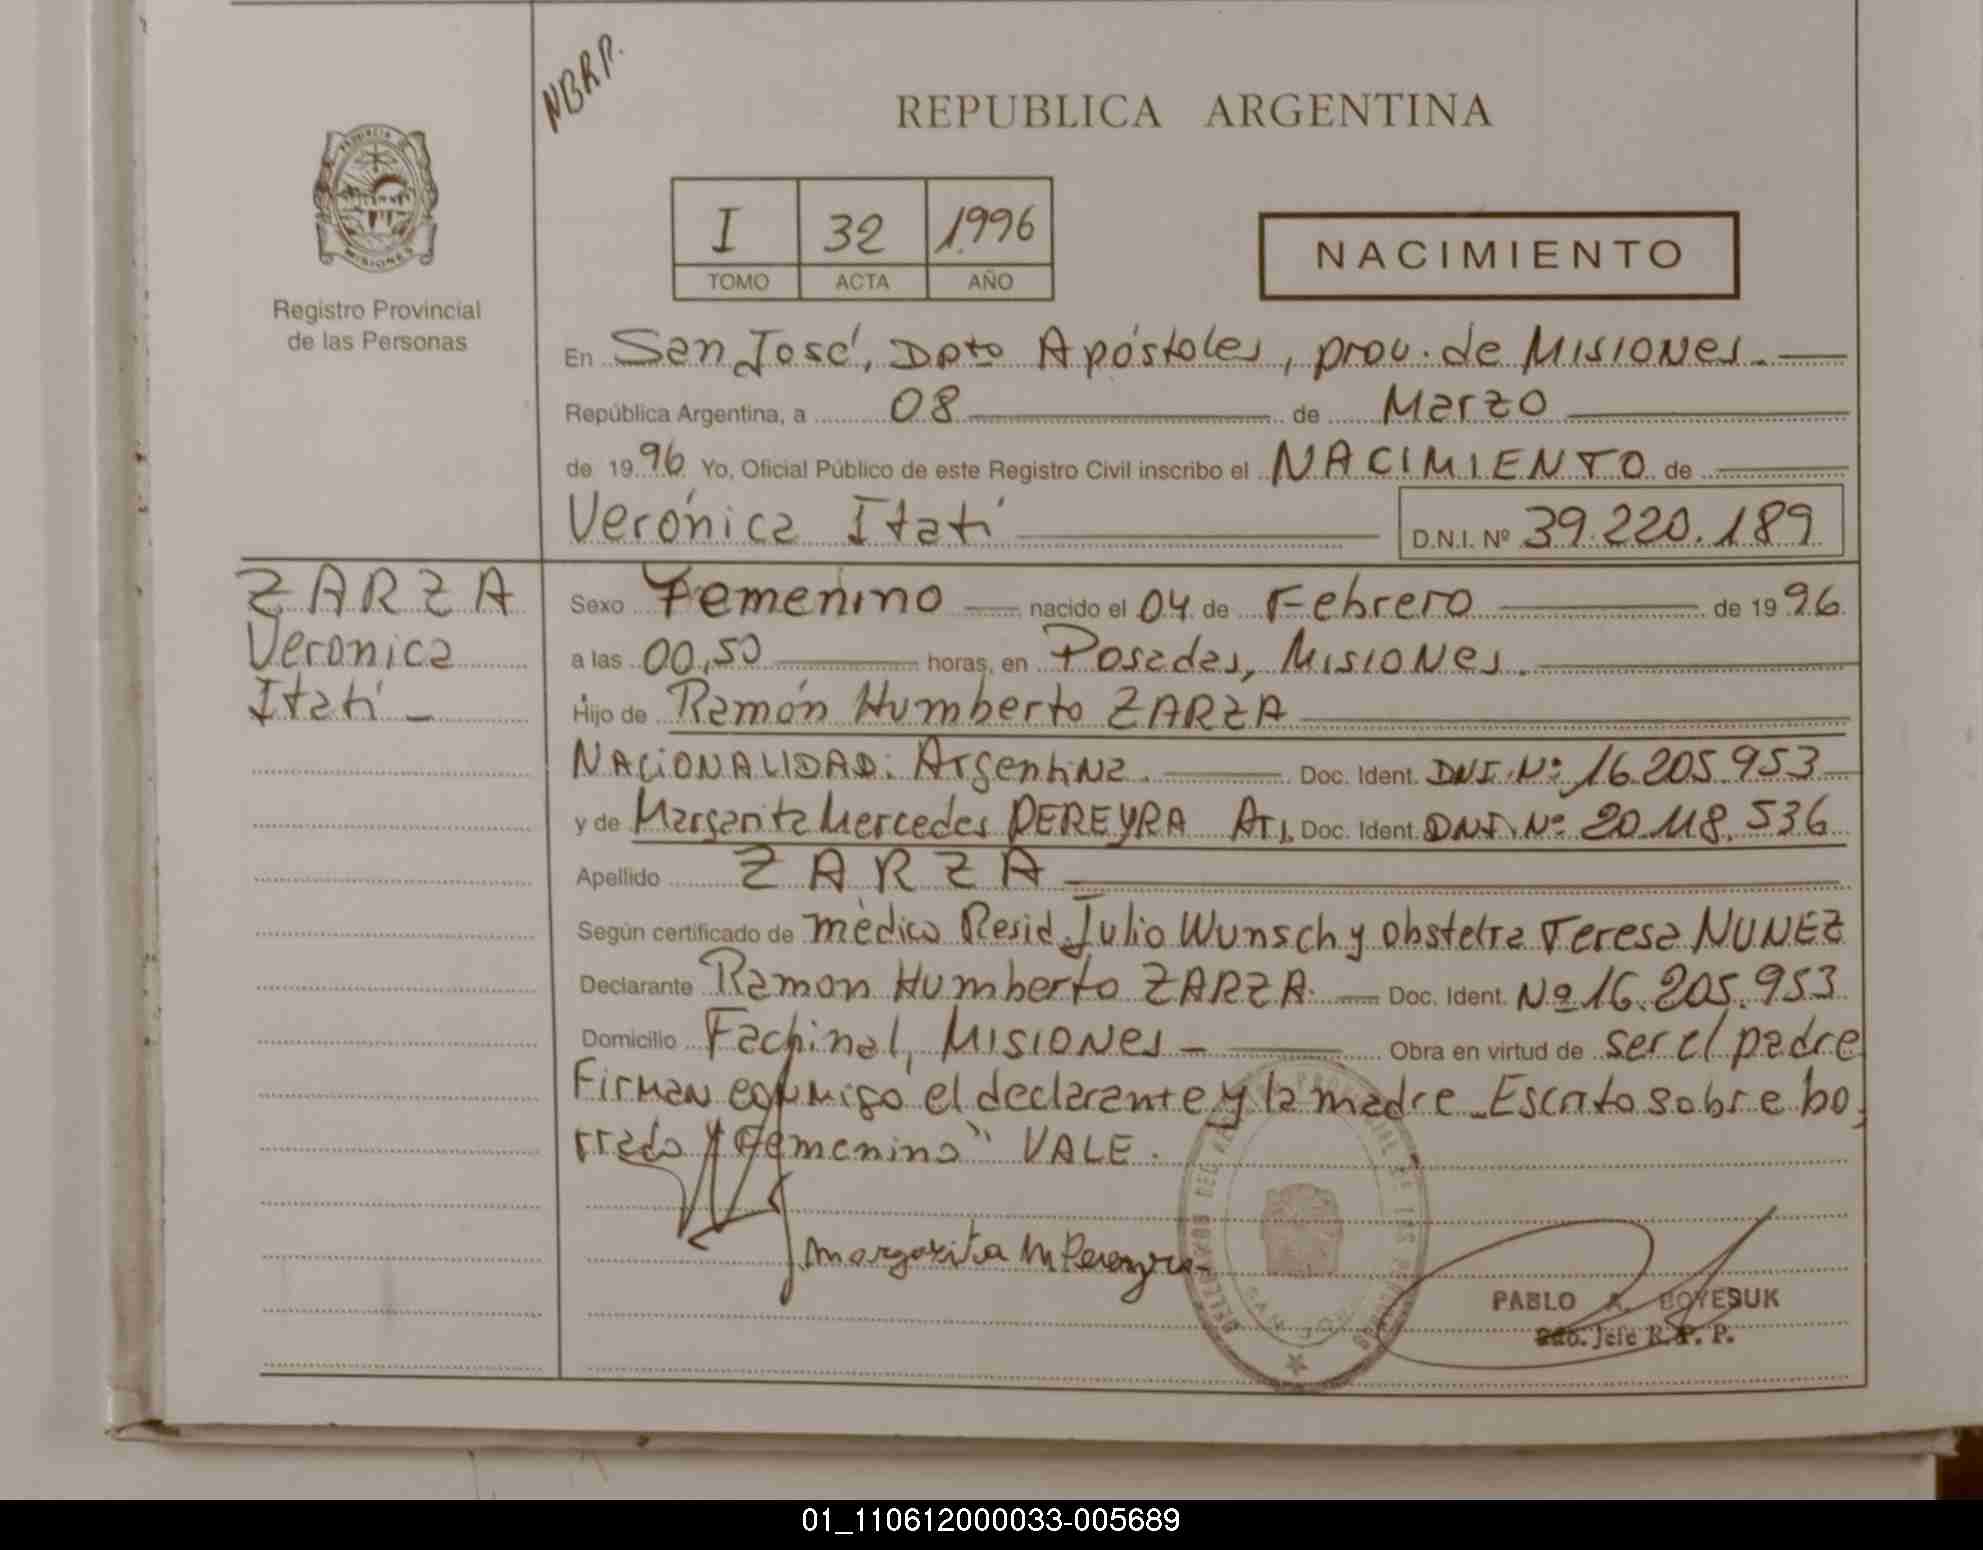 NBRP.
REPUBLICA ARGENTINA
PROVINCIA DE
MISIONES
Registro Provincial
de las Personas
I 32 1996
TOMO ACTA AÑO
NACIMIENTO
En San José, Dpto Apóstoles, prov. de MISIONES.
República Argentina, a 08 de Marzo
de 1996 Yo, Oficial Público de este Registro Civil inscribo el NACIMIENTO de
Verónica Itatí D.N.I. Nº 39.220.189
ZARZA
Veronica
Itatí -
Sexo Femenino nacido el 04 de Febrero de 1996
a las 00,50 horas, en Posadas, MISIONES.
Hijo de Ramón Humberto ZARZA
NACIONALIDAD: Argentina. Doc. Ident. DNI. Nº 16.205.953
y de Margarita Mercedes PEREYRA Doc. Ident. DNI. Nº 20.118.536
Apellido ZARZA
Según certificado de médico Resid. Julio Wunsch y obstetra Teresa NUNEZ
Declarante Ramon Humberto ZARZA. Doc. Ident. Nº 16.205.953
Domicilio Fachinal, MISIONES - Obra en virtud de ser el padre
Firman conmigo el declarante y la madre - Escrito sobre bo
rrado "Femenino" VALE.
Margarita M Pereyra
SAN JOSE
PABLO A. BOYESUK
2do. Jefe R. P. P.
01_110612000033-005689